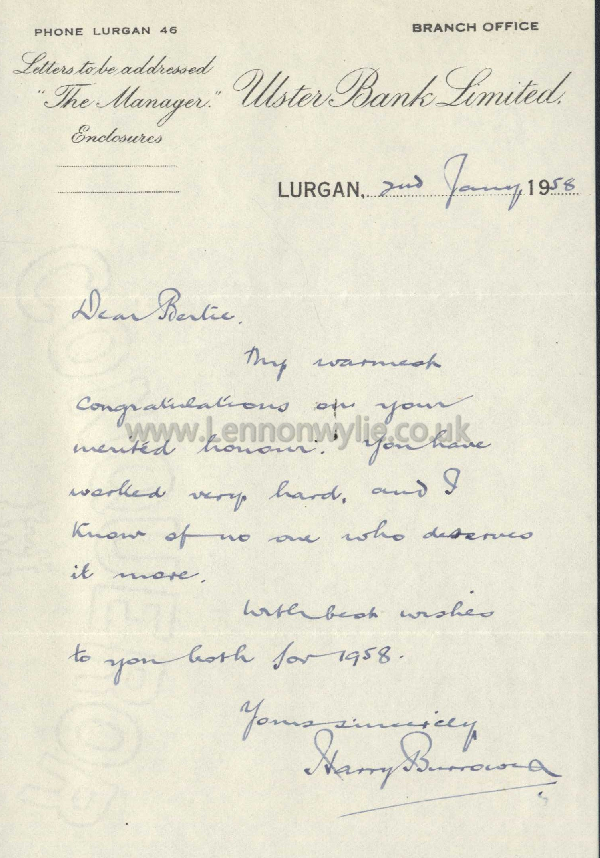 PHONE LURGAN 46
BRANCH OFFICE
Letters to be addressed
"The Manager."
Ulster Bank Limited.
Enclosures
LURGAN, 2nd Jany, 1958
Dear Bertie.
My warmest
congratulations on your
www.Lennonwylie.co.uk
merited honour. You have
worked very hard, and I
know of no one who deserves
it more.
With best wishes
to you both for 1958.
Yours sincerely,
Harry Burrows
CONQUEROR